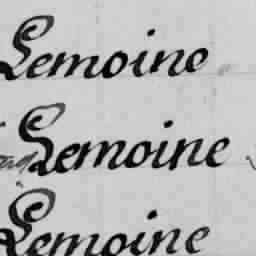 Lemoine
Lemoine
Lemoine